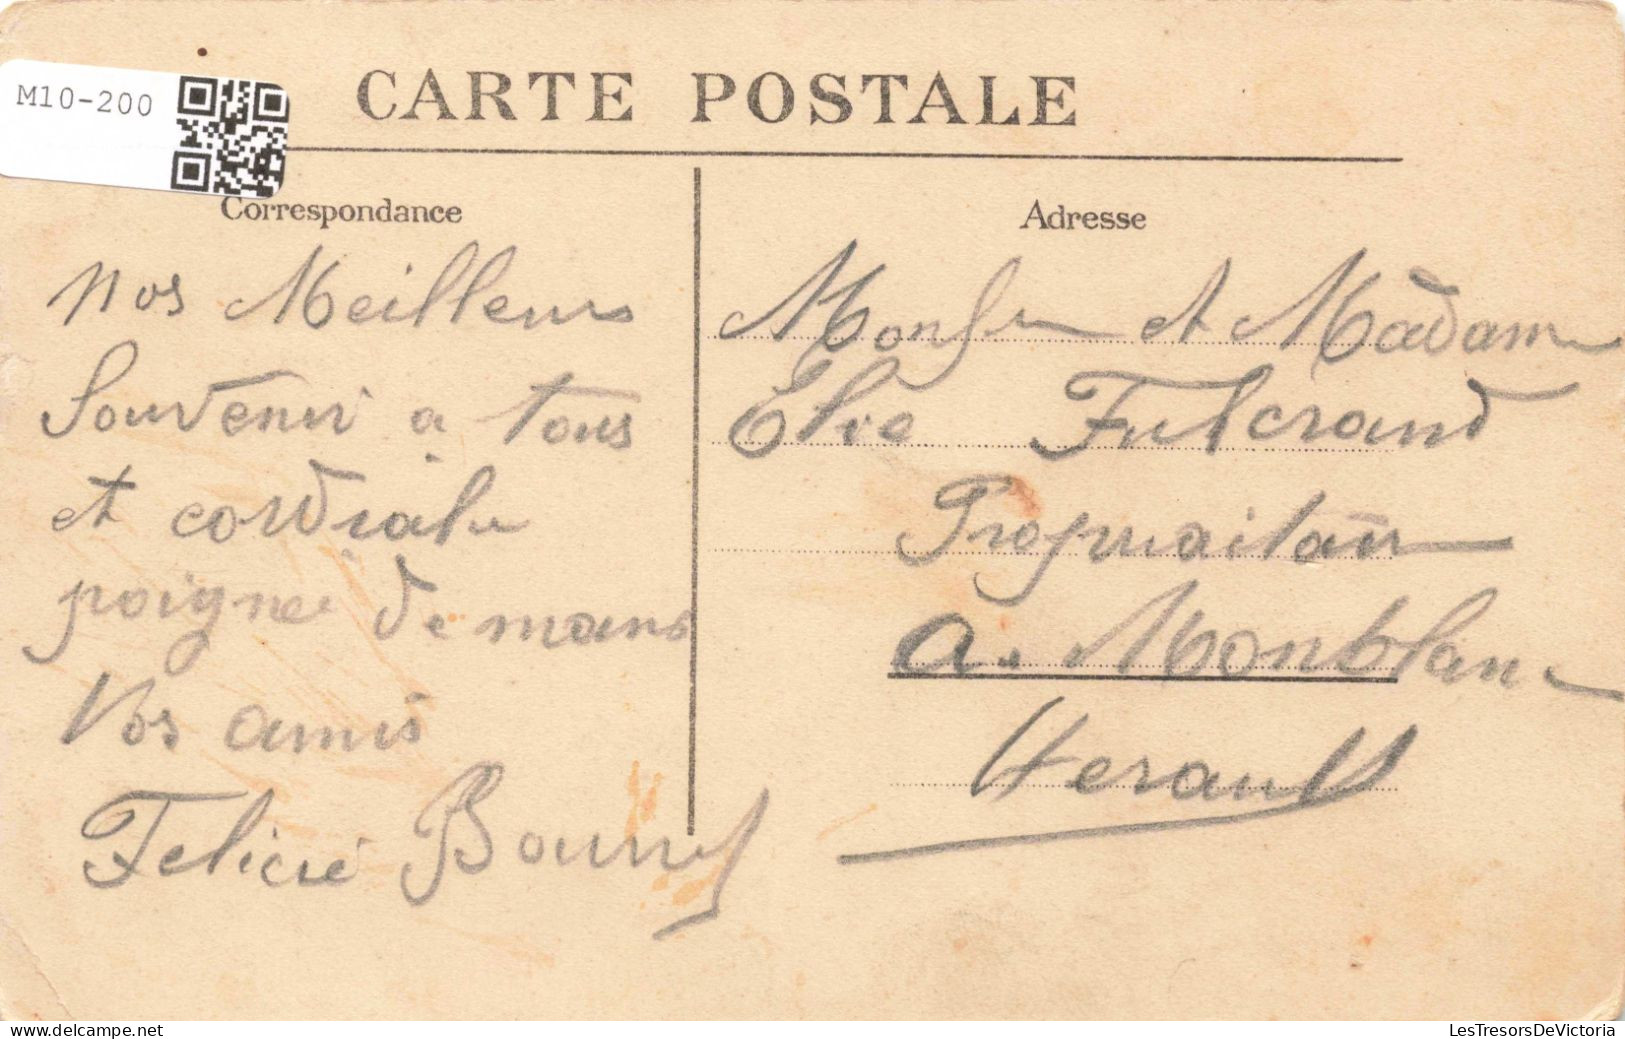 M10-200
CARTE POSTALE
Correspondance
Nos Meilleurs
Souvenir a tous
et cordiale
poignei de mains
Vos amis
Felicié
Adresse
et Madame
Elie Fulcrand
Propriaitaire
a. Montblanc
Herault
delcampe.net
LesTresorsDeVictoria